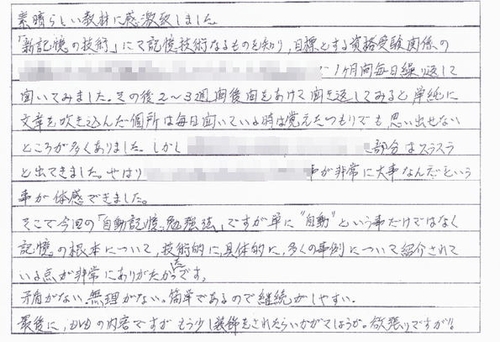 素晴らしい教材に感激致しました
「新記憶の技術」にて記憶技術なるものを知り、目標とする資格受験関係の
1ヶ月間毎日繰り返して
聞いてみました。その後2〜3週間後間をあけて聞き返してみると単純に
文章を吹き込んだ個所は毎日聞いている時は覚えたつもりでも、思い出せない
ところが多くありました。しかし 部分はスラスラ
と出てきました。やはり 事が非常に大事なんだという
事が体感できました。
そこで今回の「自動記憶勉強法」ですが単に"自動"という事だけではなく
記憶の根本について、技術的に、具体的に、多くの事例について紹介されて
いる点が非常にありがたかったです。
矛盾がない、無理がない。簡単であるので継続がしやすい。
最後に、の内容ですがもう少し装飾をされたらいかがでしょうか。欲張りですが!